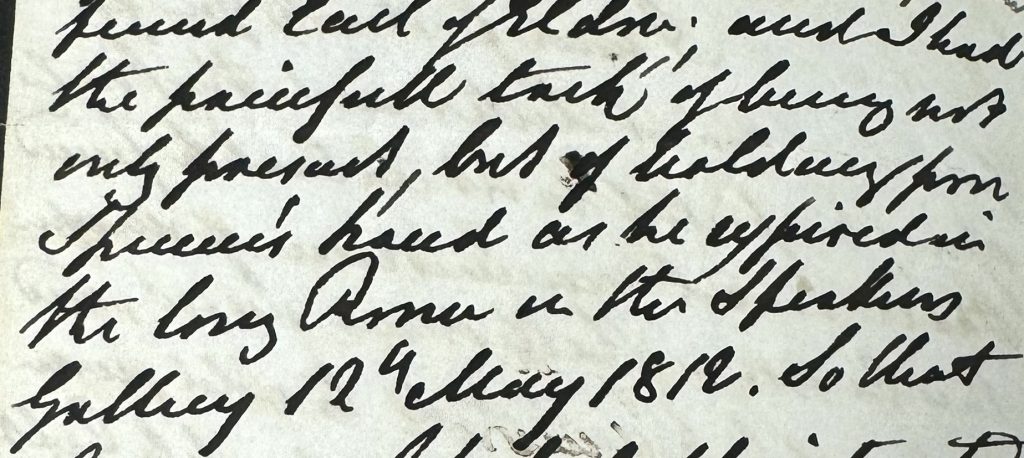 found Earl of Eldon; and I had
the painfull task of being not
only present, but of holding poor
Spencer's hand as he expired in
the long Room in the Speakers
Gallery 12th May 1812. So that